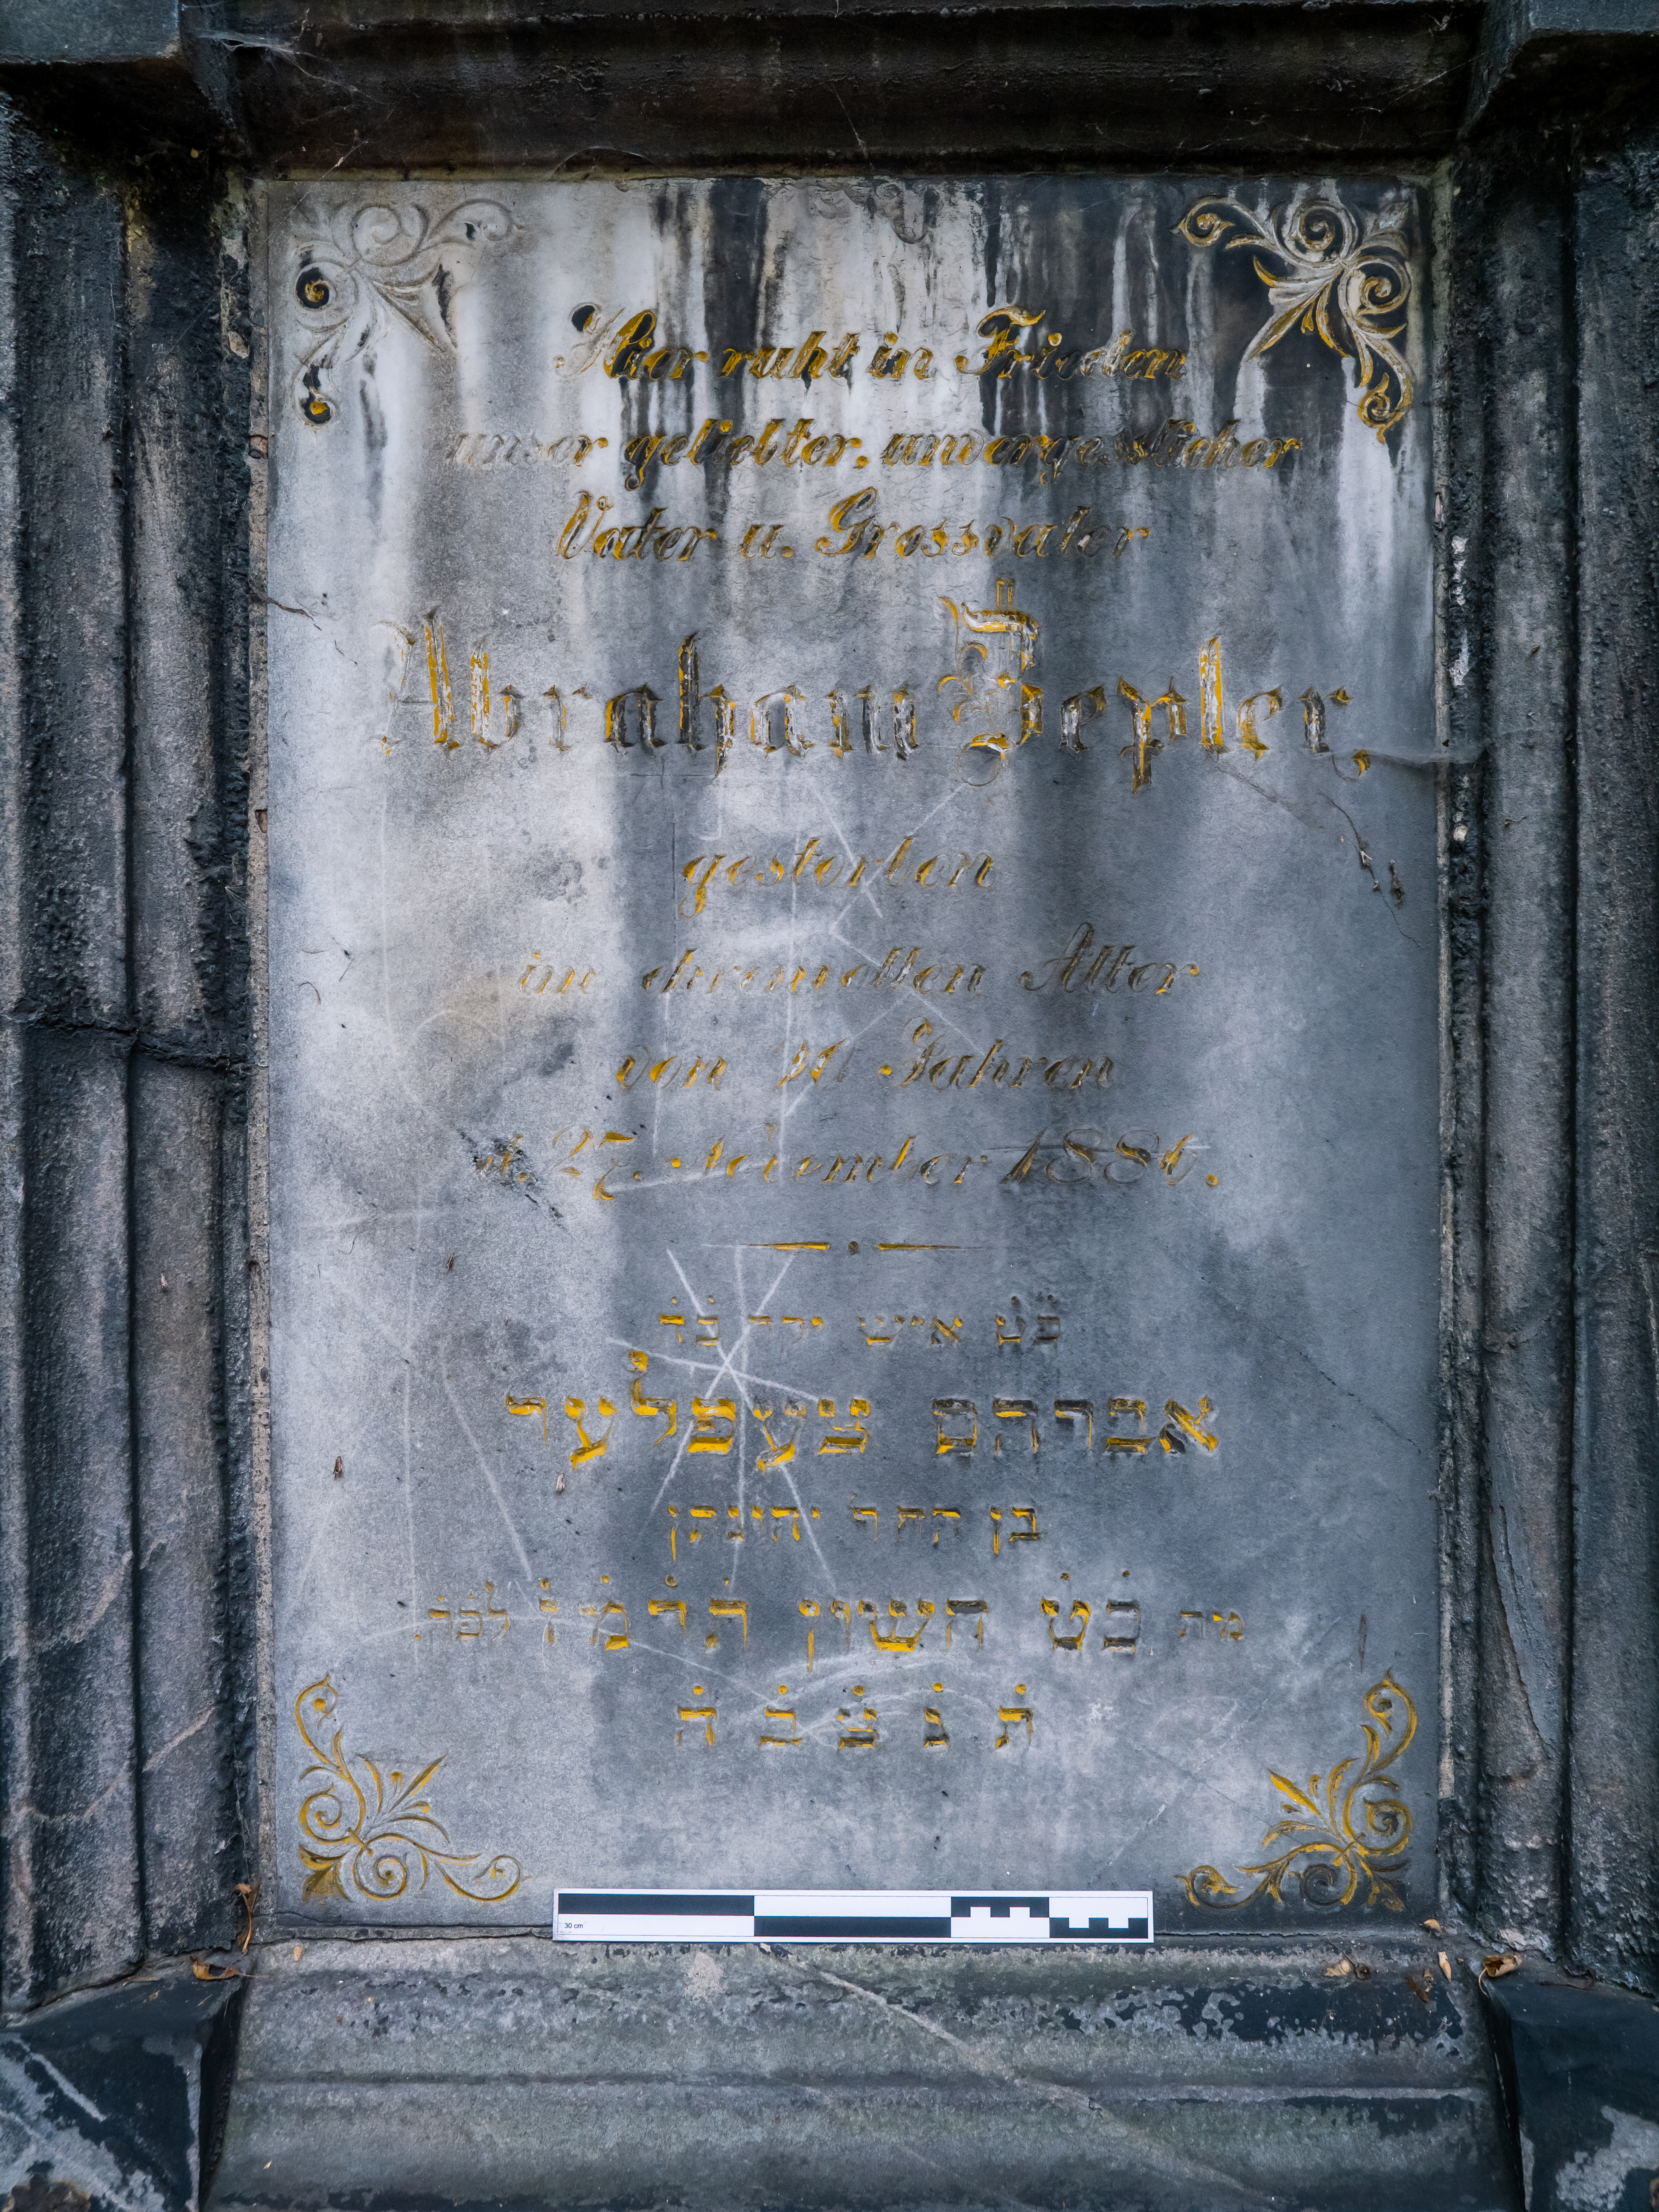 Hier ruht in Frieden
unser geliebter, unvergesslicher
Vater u. Grossvater
Abraham Zepler,
gestorben
im ehrenvollen Alter
von Jahren
d. 27. November 1886.
איש יקר
אברהם צעפלער
בן החר יהונתן
מת כׄטׄ חשון תׄרׄמׄזׄ לפׄקׄ.
תׄ נׄ צׄ בׄ הׄ
30 cm